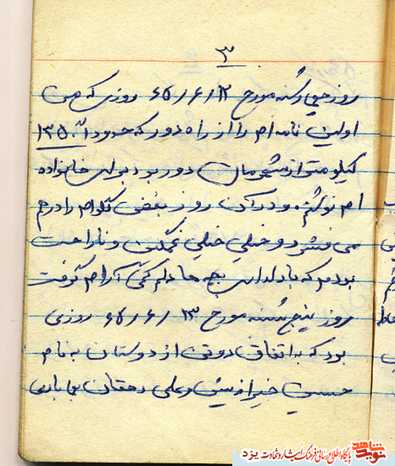 ۳
روز چهارشنبه مورخ ۱۲/۶/۶۵ روزی که من
اولین نامه ام را از راه دور که حدود ۱۳۵۰
کیلومتر از شهرمان دور بود برای خانواده
ام نوشتم و در آن روز بغض گلوام را درهم
می فشرد و خیلی خیلی غمگین و ناراحت
بودم که با دلداری بچه ها دلم کمی آرام گرفت
روز پنج شنبه مورخ ۱۳/۶/۶۵ روزی
بود که به اتفاق دو تن از دوستان به نام
حسین و علی دهقان
نوید شاهد
پایگاه اطلاع رسانی فرهنگ ایثار و شهادت یزد